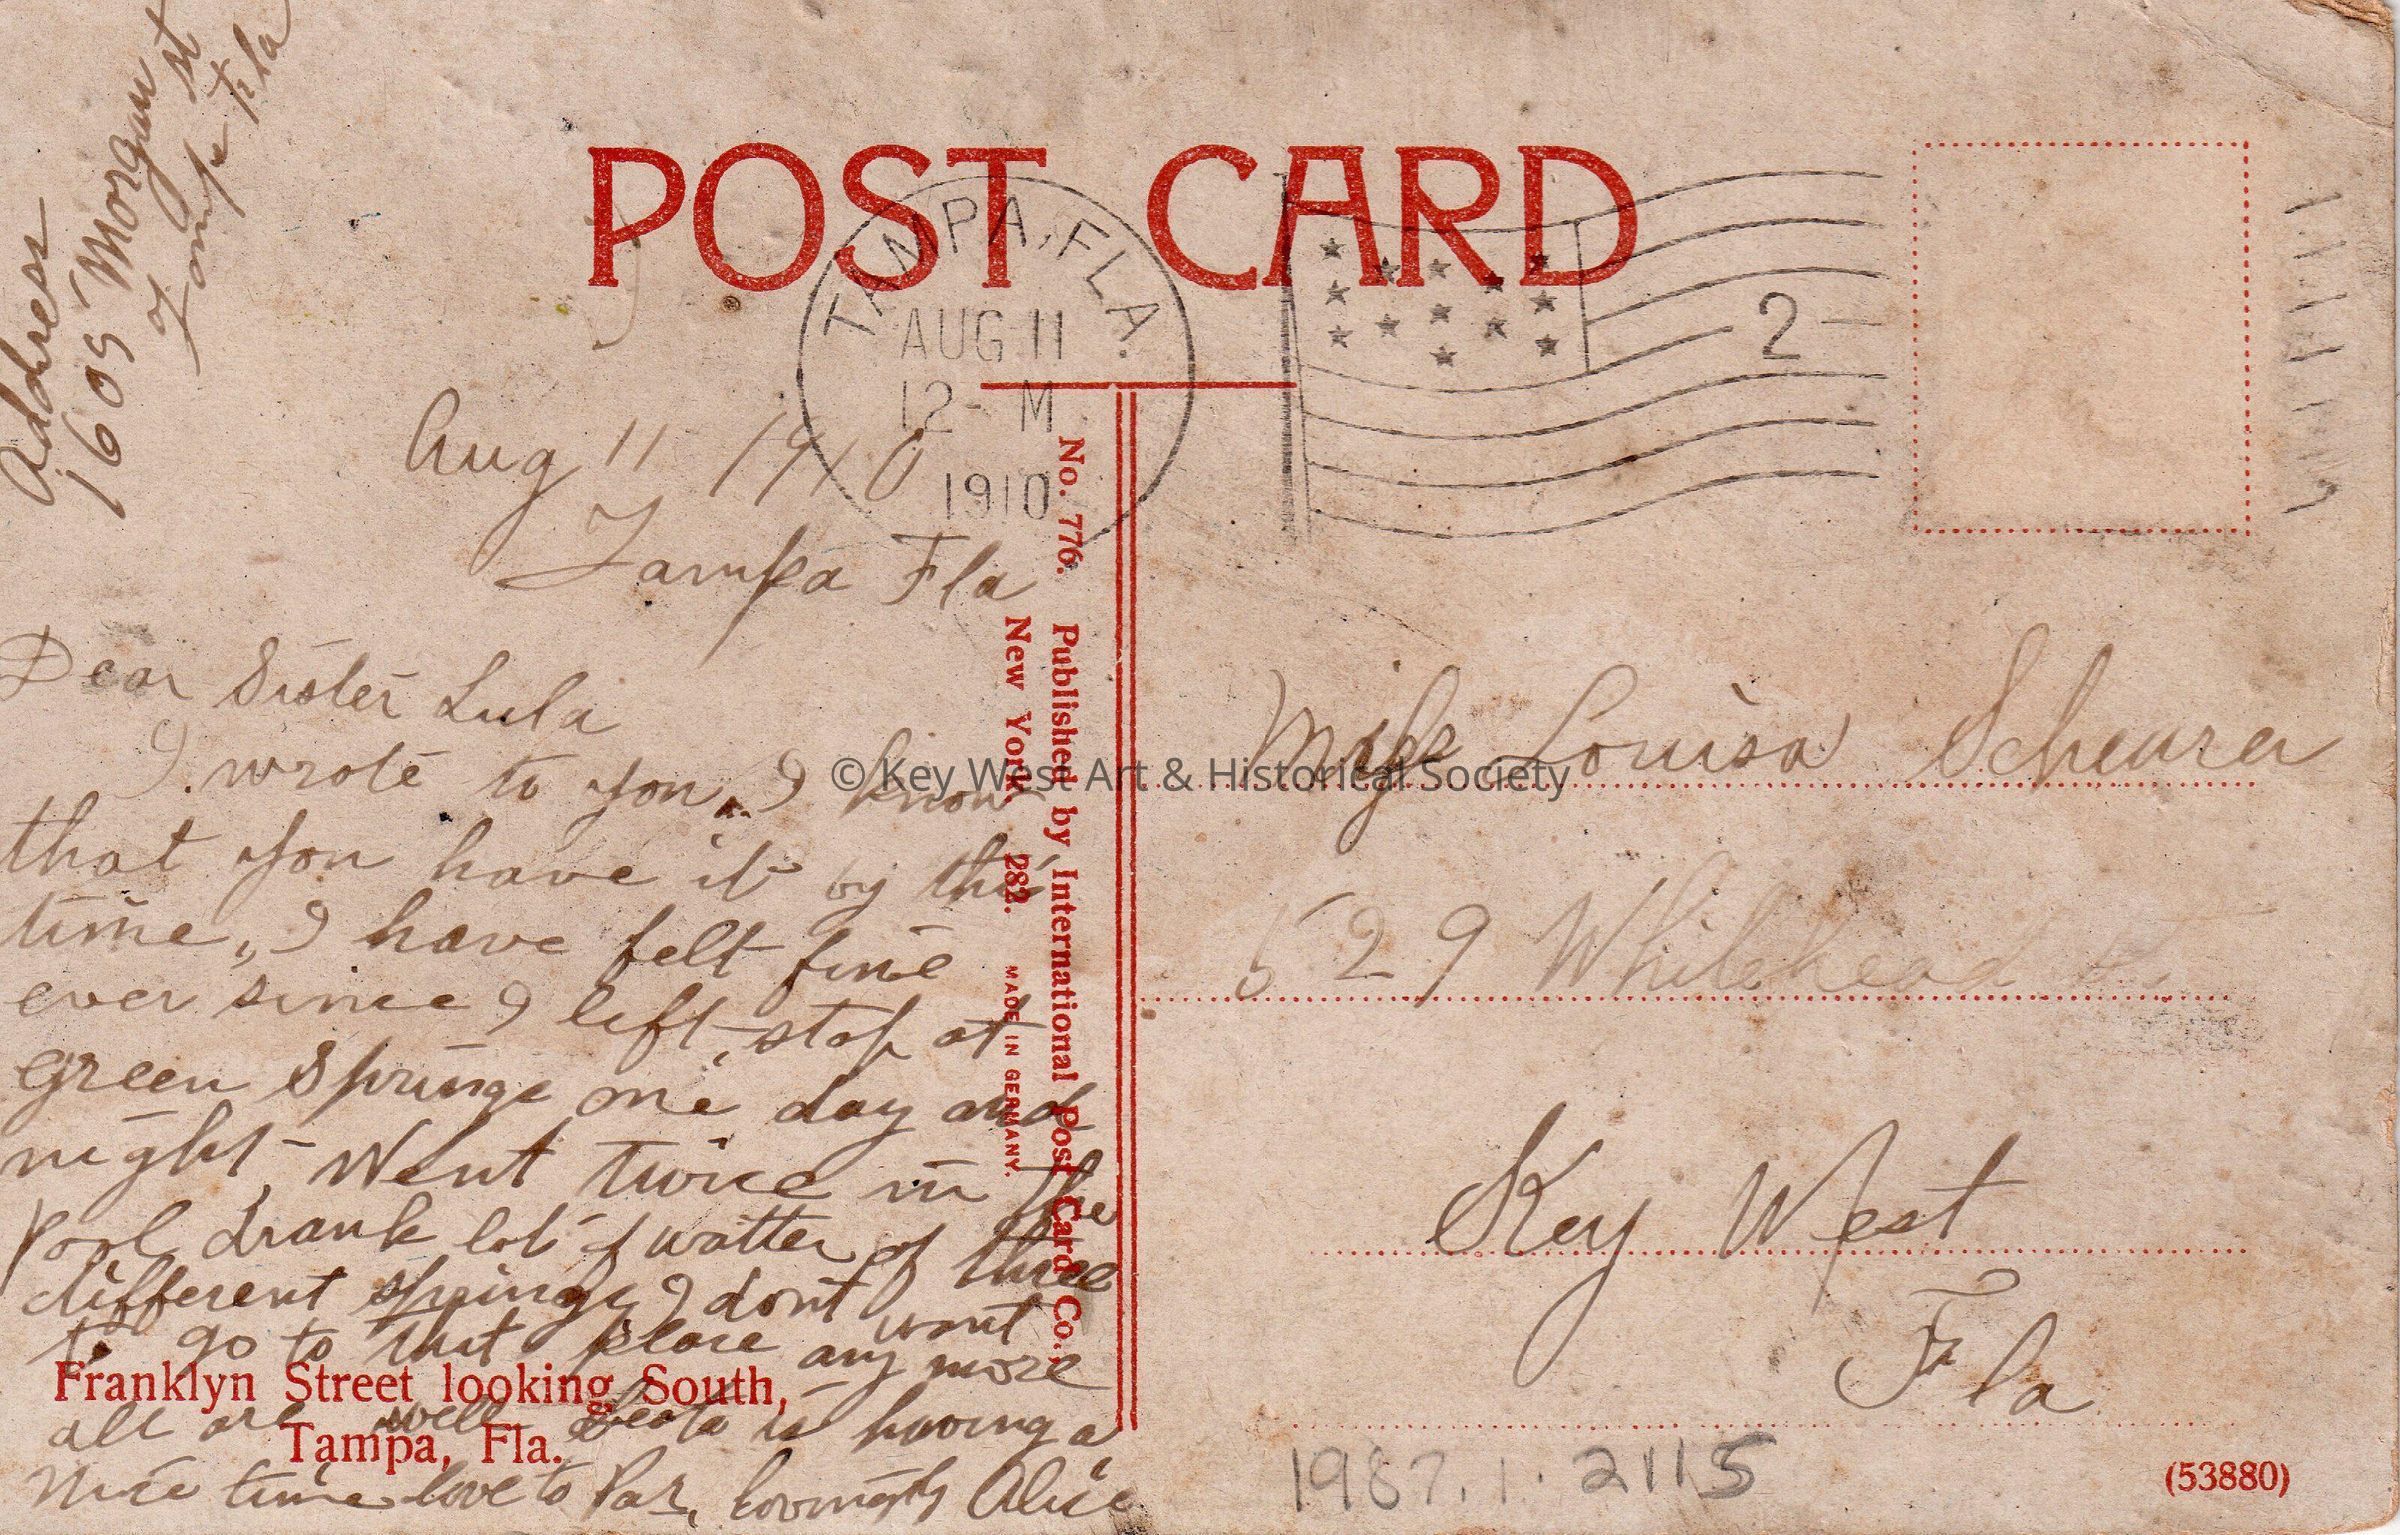 Address
1609 Morgan st
Tampa Fla
POST CARD
TAMPA, FLA.
AUG 11
12- M
1910
2
Aug 11 1910
Tampa Fla
Dear Sister Lula
I wrote to you, I know
that you have it by this
time, I have felt fine
ever since I left, stop at
green Springs one day and
night, Went twice in the
pool drank lot of watter of three
different springs I dont want
to go to that place any more
all are well is having a
nice time love to Par, Lovingly Alice
Franklyn Street looking South,
Tampa, Fla.
No. 776. Published by International Post Card Co.,
New York. 282. MADE IN GERMANY.
© Key West Art & Historical Society
Miss Louisa Scheurer
529 Whitehead St
Key West
Fla
1987.1.2115
(53880)